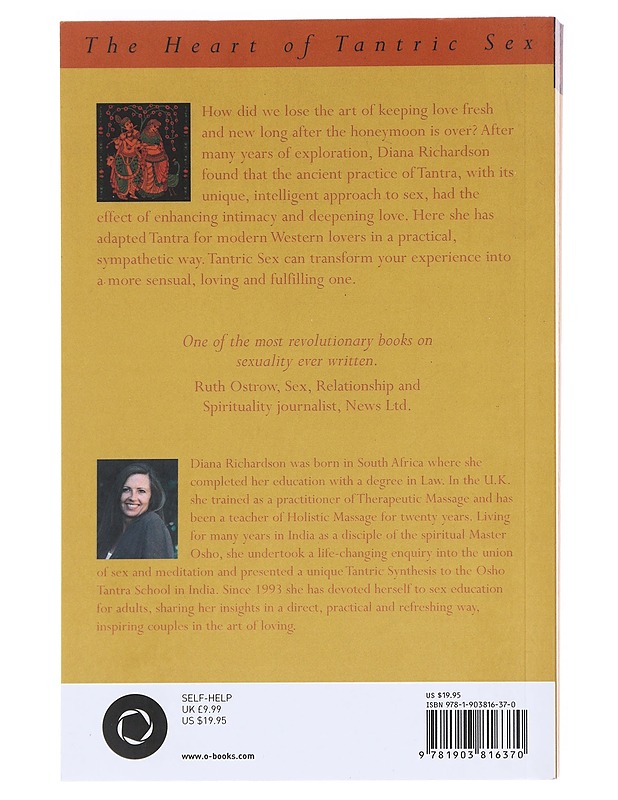 The Heart of Tantric Sex
How did we lose the art of keeping love fresh
and new long after the honeymoon is over? After
many years of exploration, Diana Richardson
found that the ancient practice of Tantra, with its
unique, intelligent approach to sex, had the
effect of enhancing intimacy and deepening love. Here she has
adapted Tantra for modern Western lovers in a practical,
sympathetic way. Tantric Sex can transform your experience into
a more sensual, loving and fulfilling one.
One of the most revolutionary books on
sexuality ever written.
Ruth Ostrow, Sex, Relationship and
Spirituality journalist, News Ltd.
Diana Richardson was born in South Africa where she
completed her education with a degree in Law. In the U.K.
she trained as a practitioner of Therapeutic Massage and has
been a teacher of Holistic Massage for twenty years. Living
for many years in India as a disciple of the spiritual Master
Osho, she undertook a life-changing enquiry into the union
of sex and meditation and presented a unique Tantric Synthesis to the Osho
Tantra School in India. Since 1993 she has devoted herself to sex education
for adults, sharing her insights in a direct, practical and refreshing way,
inspiring couples in the art of loving.
SELF-HELP
UK £9.99
US $19.95
www.o-books.com
US $19.95
ISBN 978-1-903816-37-0
9 781903 816370